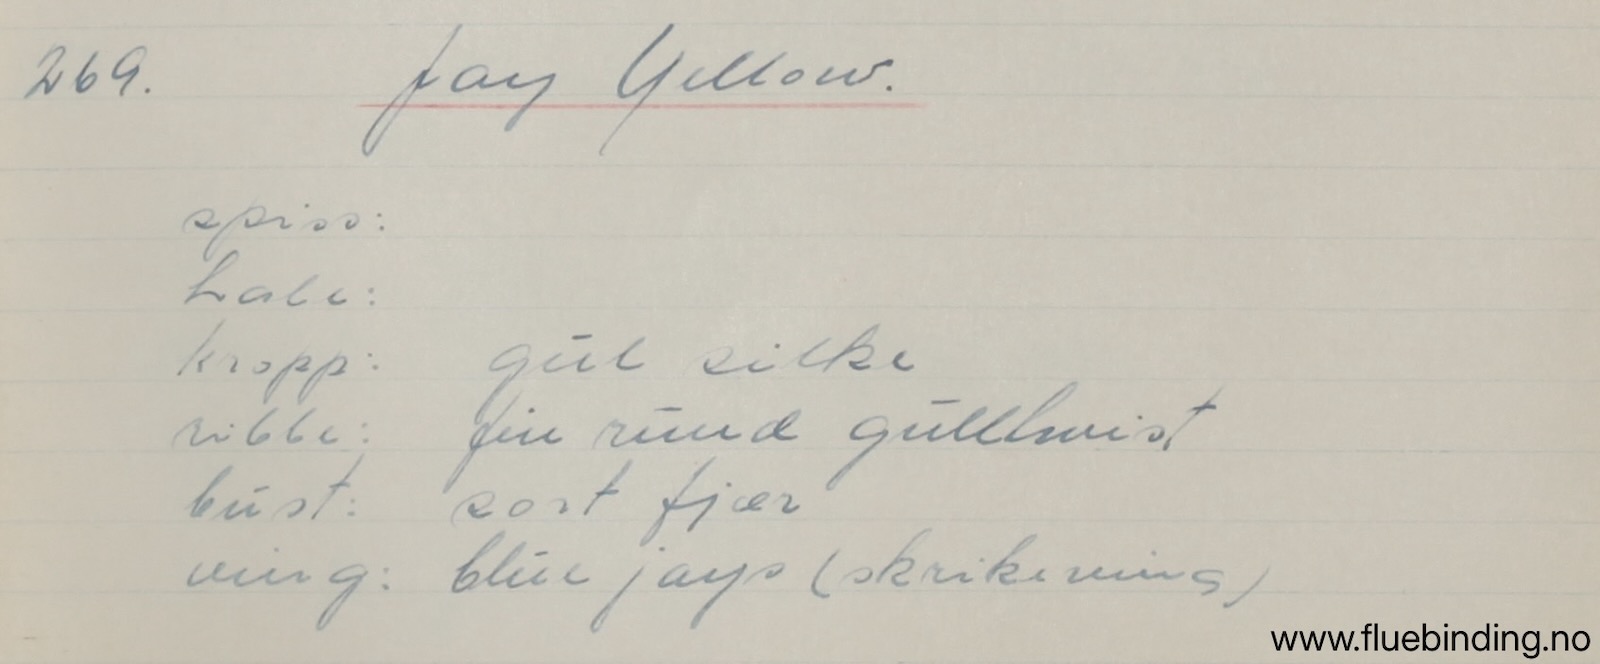 269. Jay Yellow.
spiss:
hale:
kropp: gul silke
ribbe: fin rund gulltvist
bust: sort fjær
ving: blue jays (skrikeving)
www.fluebinding.no